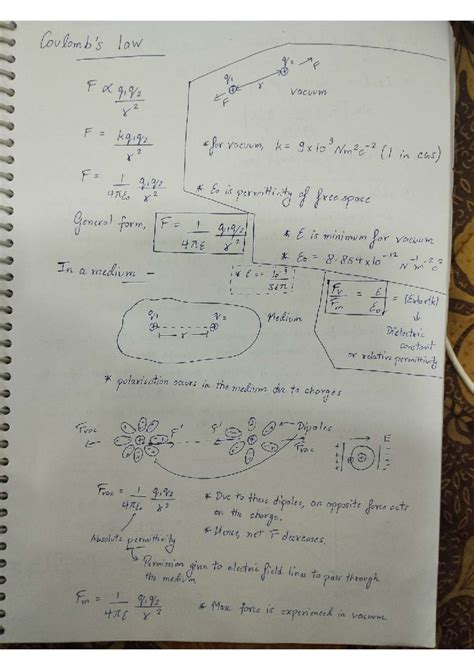 Coulomb's law
F ∝ q₁q₂/r²
q₁ q₂ F
F r vacuum
F = kq₁q₂/r²
* for vacuum, k = 9×10⁹ Nm²c⁻² (1 in CGS)
F = 1/4πε₀ q₁q₂/r²
* ε₀ is permittivity of free space
General form, F = 1/4πε q₁q₂/r²
* ε is minimum for vacuum
* ε₀ = 8.854×10⁻¹² N⁻¹m⁻²c²
In a medium -
10⁻⁹/36π
Fv/Fm = ε/ε₀ = (εr or k)
Dielectric
constant
or relative permittivity
q₁ q₂ Medium
r
* polarisation occurs in the medium due to charges
Fvac F' F' Dipoles
Fvac E
Fvac = 1/4πε₀ q₁q₂/r²
* Due to these dipoles, an opposite force acts
on the charge.
* Hence, net F decreases.
Absolute permittivity
Permission given to electric field lines to pass through
the medium
Fm = 1/4πε q₁q₂/r²
* Max force is experienced in vacuum.